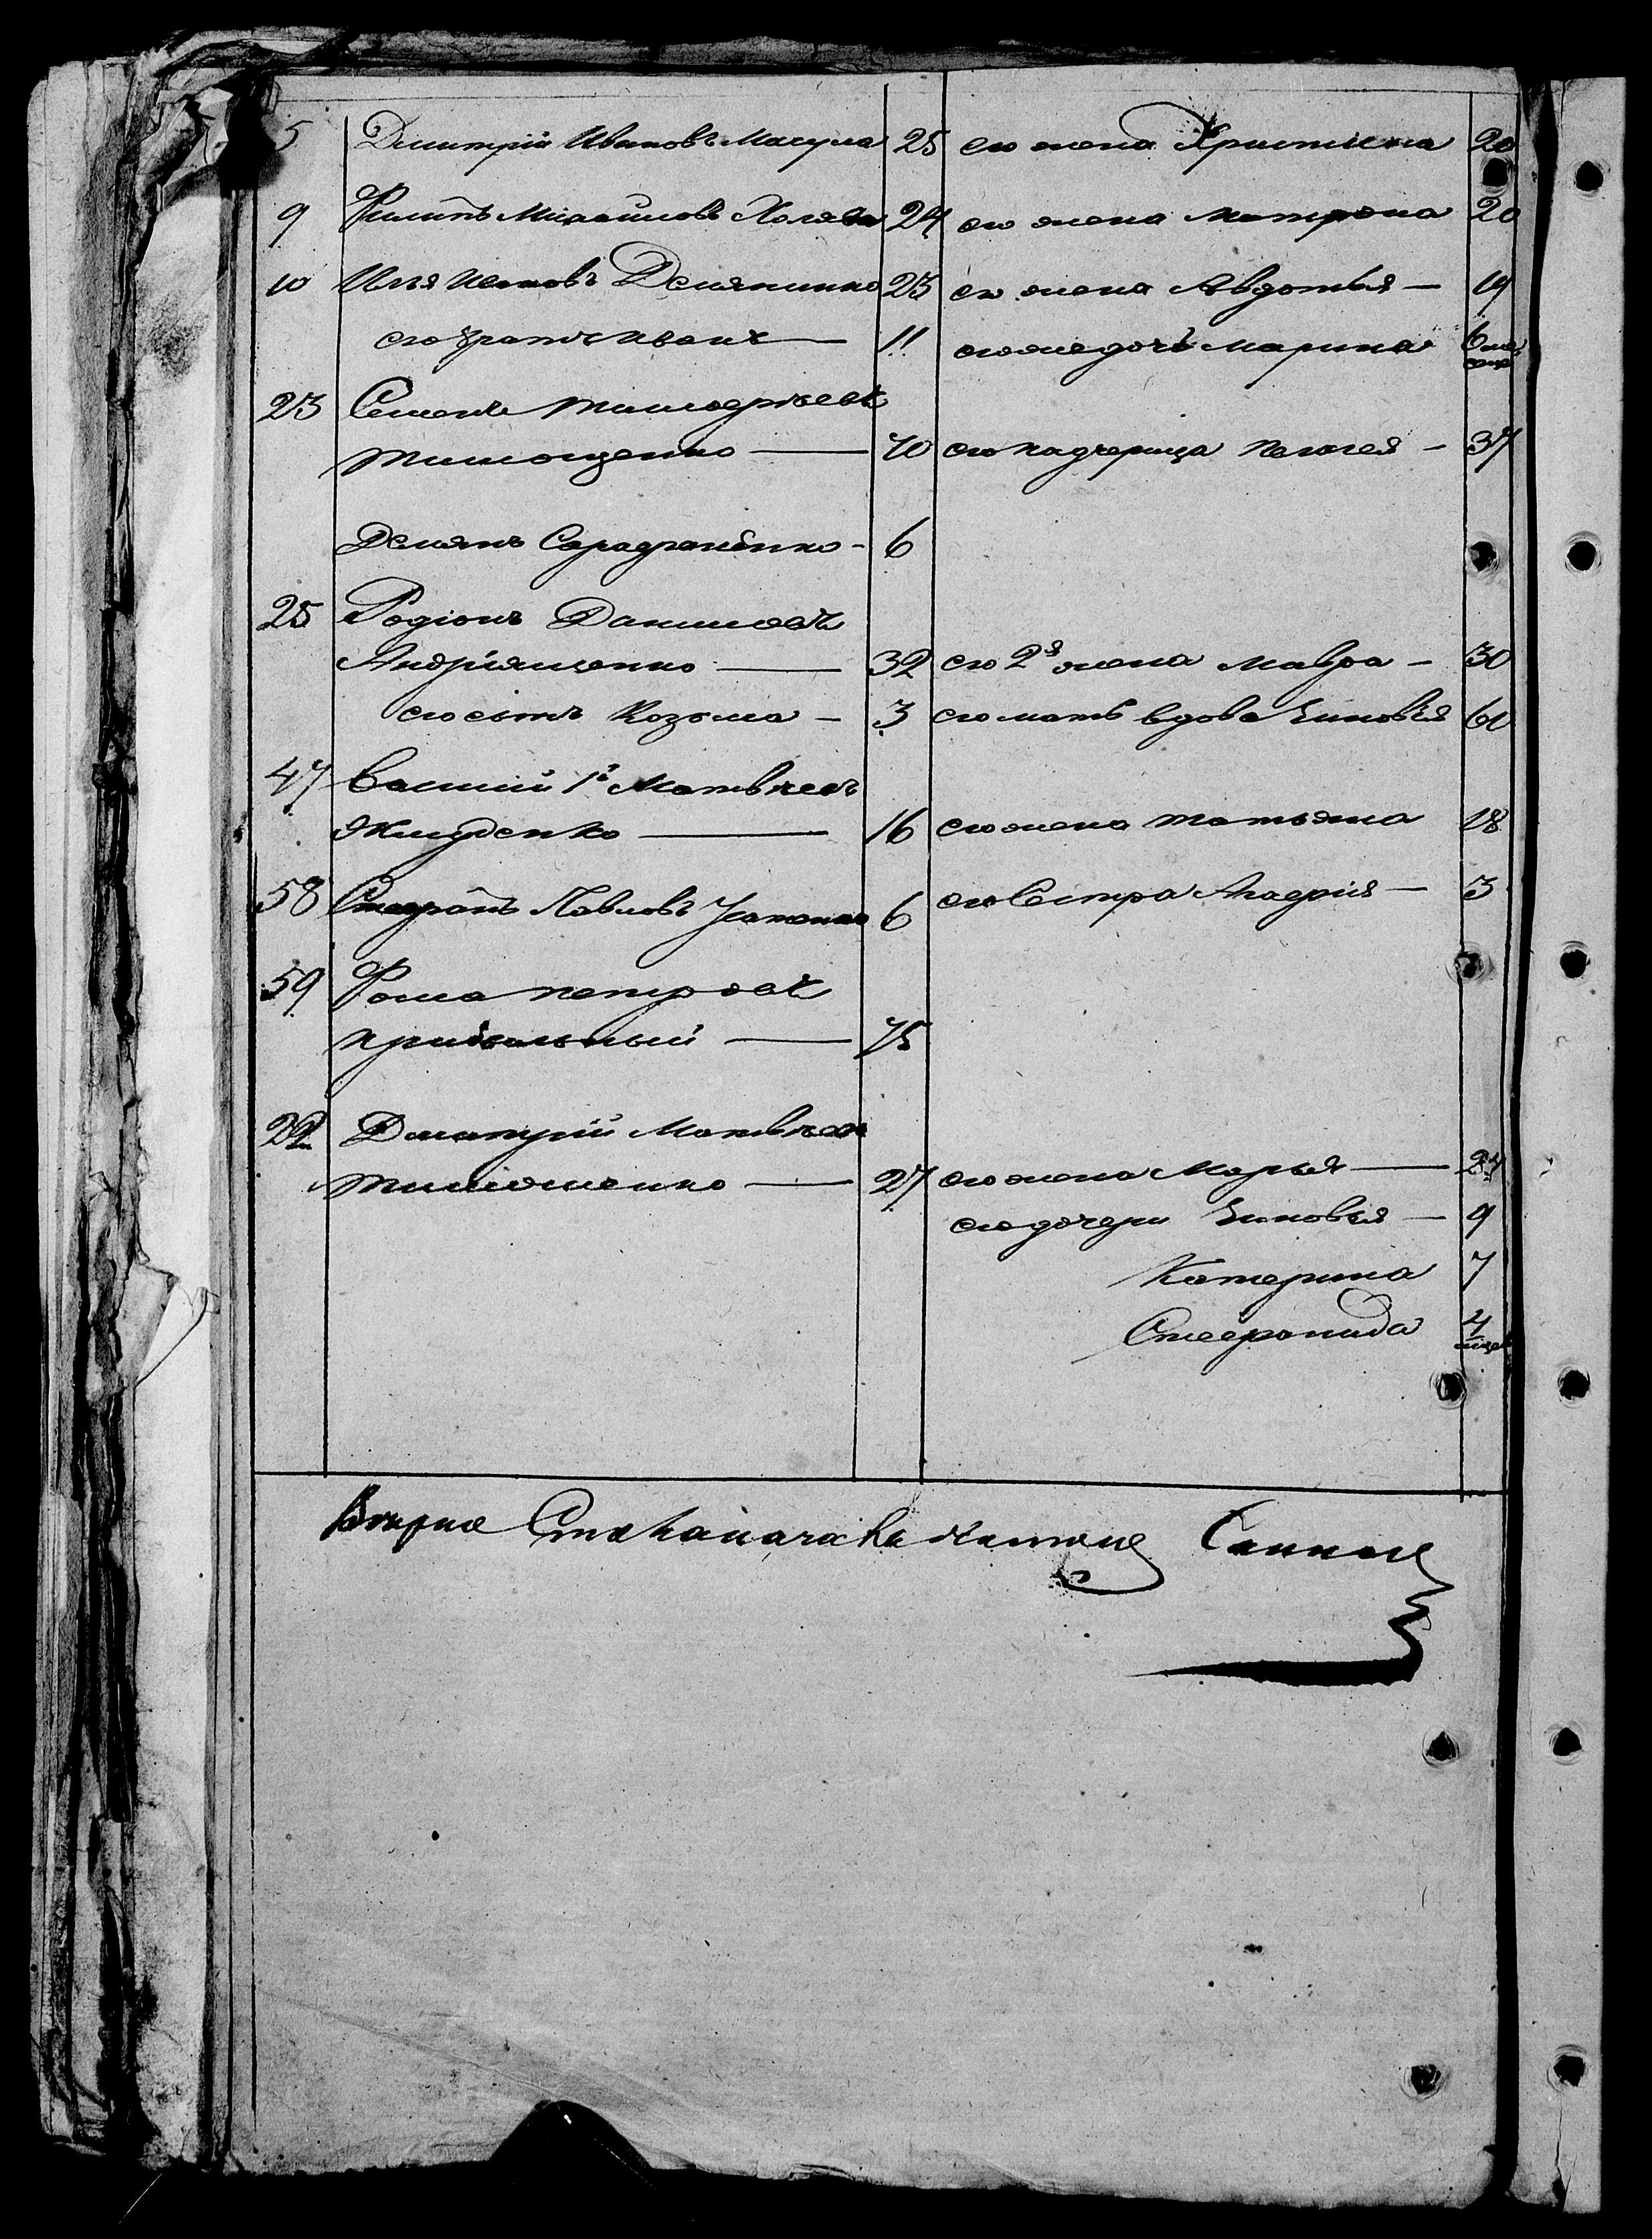 5 Дмитрій Ивановъ Мачула 25 его жена Христина 20
9 Филипъ Михайловъ Холява 24 его жена Матрона 20
10 Илья Ивановъ Демяненко 23 его жена Авдотья — 19
его братъ Иванъ — 11 его же дочь Марина 6
23 Семенъ Тимофѣевъ
Тимощенко — 70 его падчерица Пелагея — 37
Демянъ 6
25 Родіонъ Даниловъ
Андріященко — 32 его 2я жена Мавра — 30
его сынъ Козьма — 3 его мать вдова Зиновія 60
47 Василій 1й Матвѣевъ
16 его жена Татьяна 18
58 Стефанъ Павловъ 6 его Сестра Агафія — 3
59 Фома Петровъ
75
22 Дмитрій Матвѣевъ
Тимошенко — 27 его жена Марья — 27
его дочери Зиновія — 9
Катерина 7
Стефанида 4